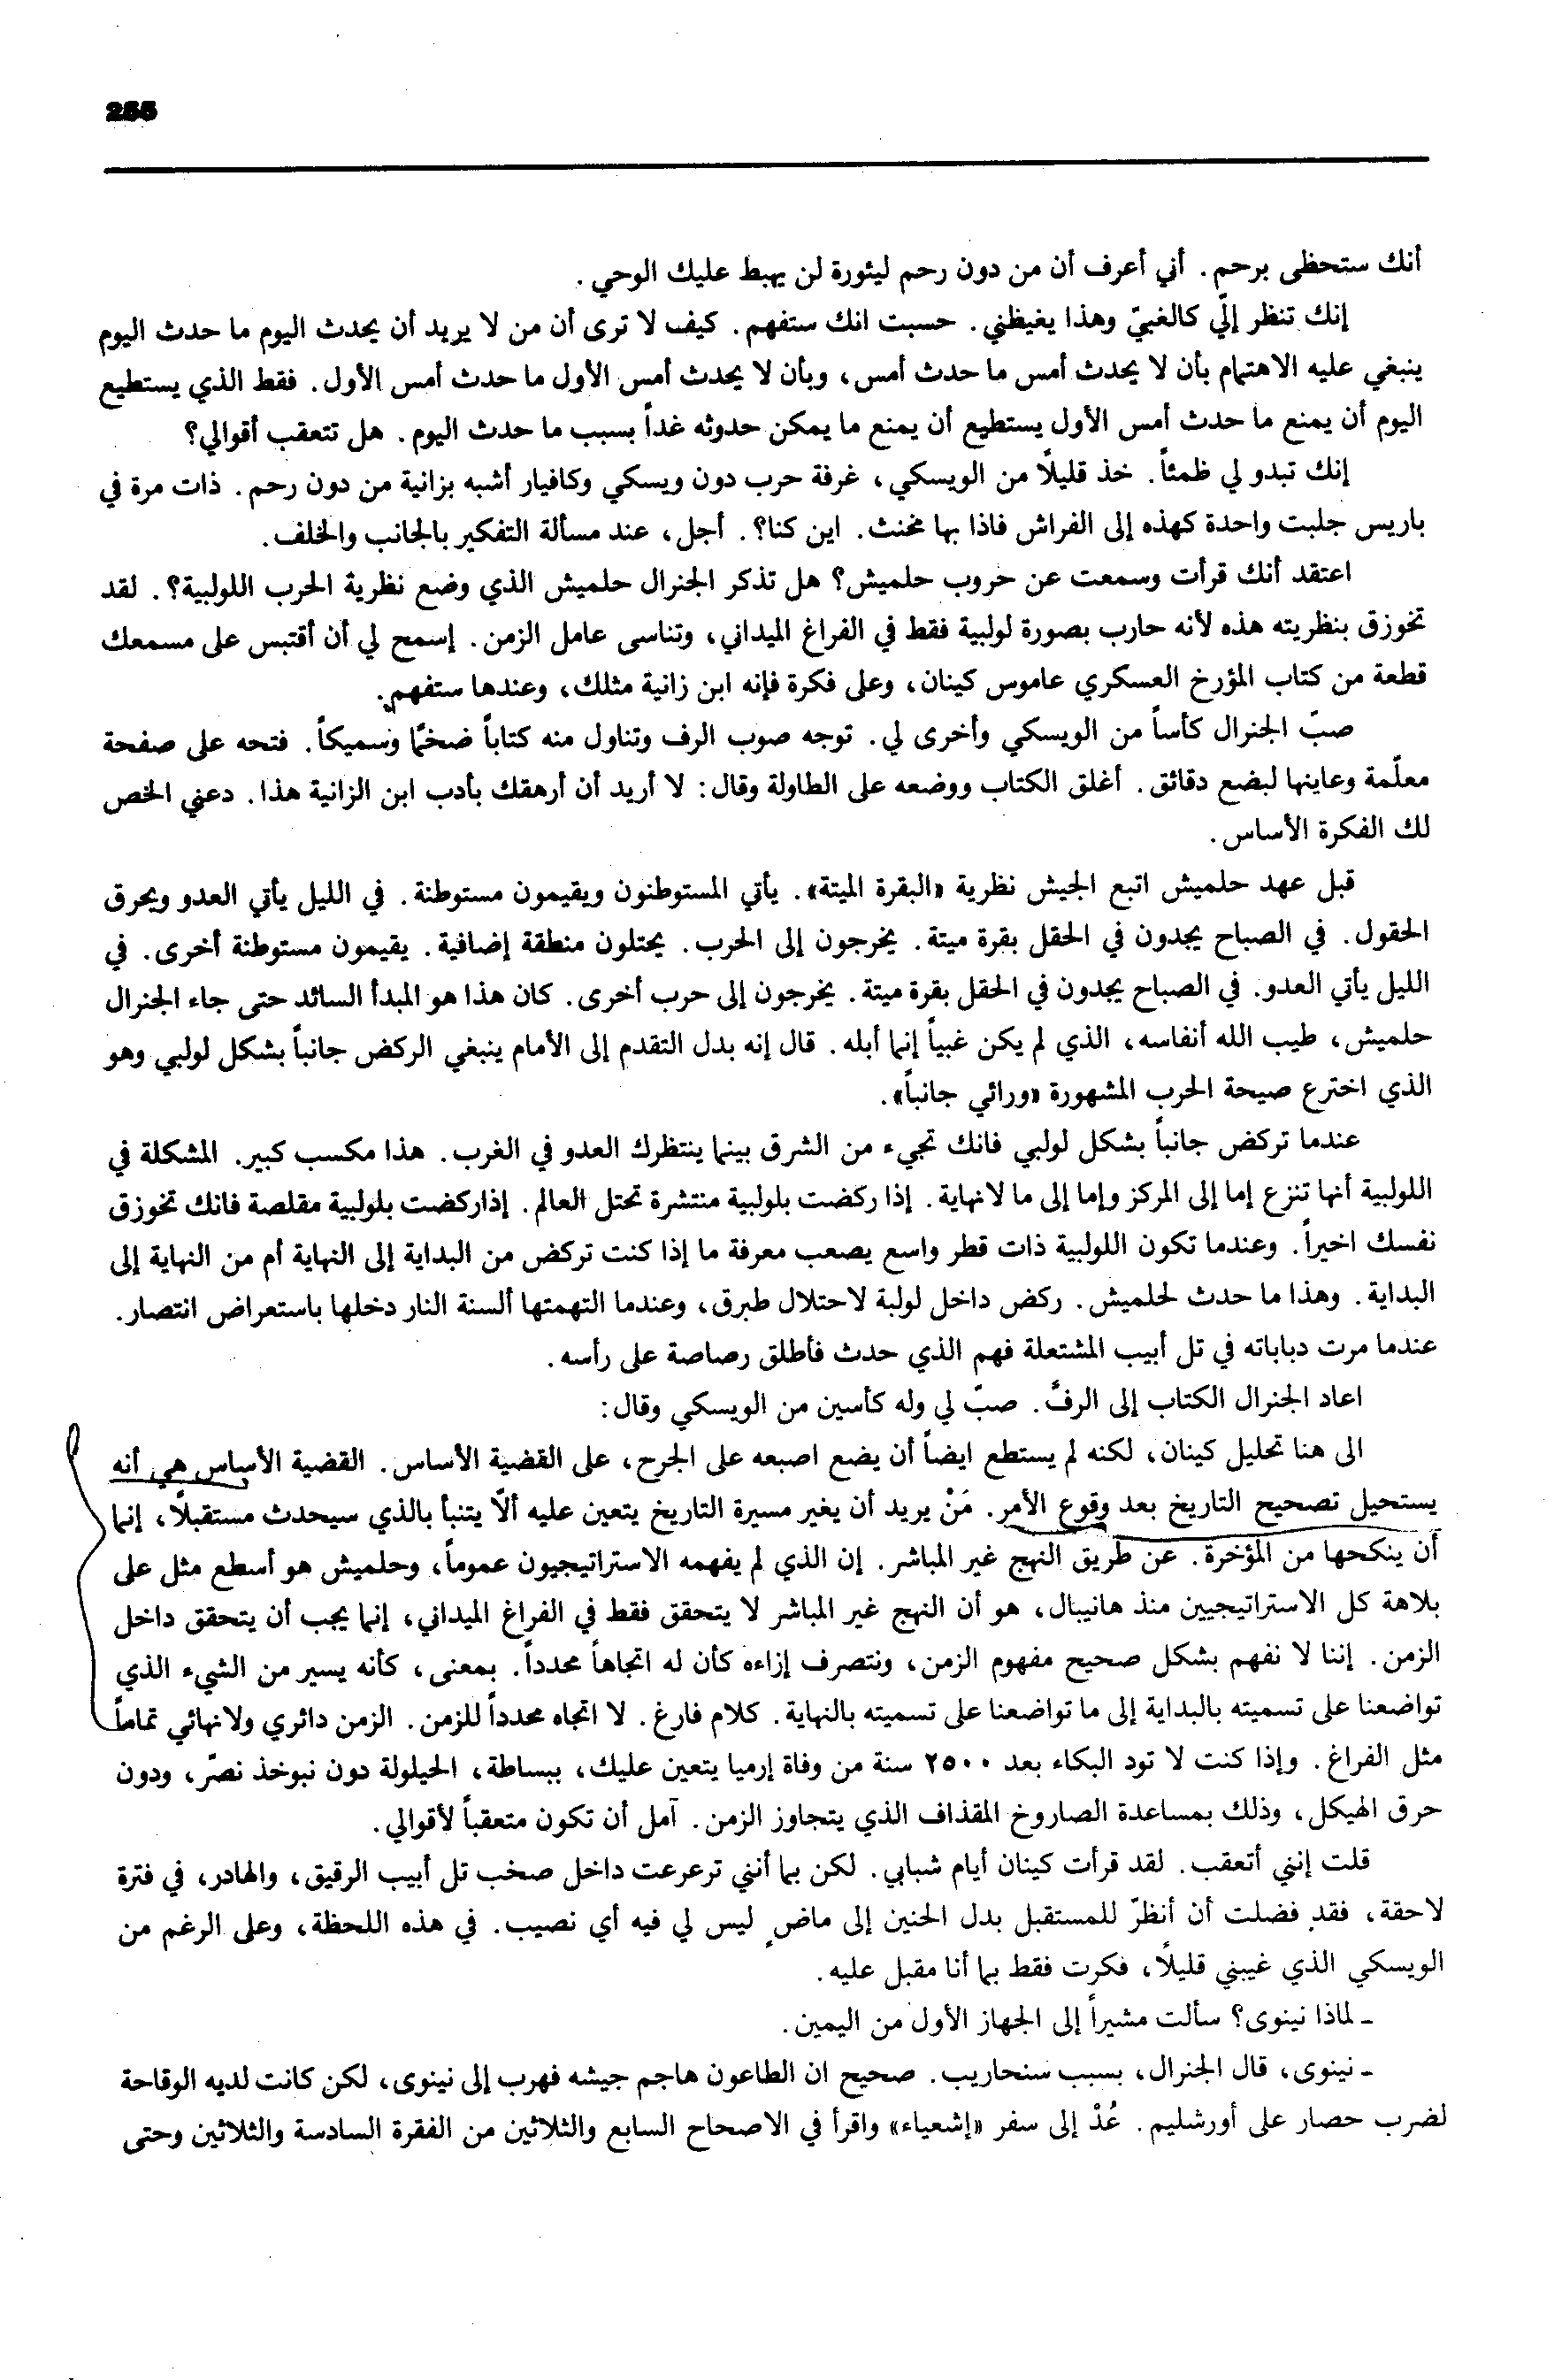 255
أنك ستحظى برحم. أني أعرف أن من دون رحم ليثورة لن يهبط عليك الوحي.
إنك تنظر إليّ كالغبيّ وهذا يغيظني. حسبت انك ستفهم. كيف لا ترى أن من لا يريد أن يحدث اليوم ما حدث اليوم
ينبغي عليه الاهتمام بأن لا يحدث أمس ما حدث أمس، وبأن لا يحدث أمس الأول ما حدث أمس الأول. فقط الذي يستطيع
اليوم أن يمنع ما حدث أمس الأول يستطيع أن يمنع ما يمكن حدوثه غداً بسبب ما حدث اليوم. هل تتعقب أقوالي؟
إنك تبدو لي ظمئاً. خذ قليلًا من الويسكي، غرفة حرب دون ويسكي وكافيار أشبه بزانية من دون رحم. ذات مرة في
باريس جلبت واحدة كهذه إلى الفراش فاذا بها مخنث. اين كنا؟. أجل، عند مسألة التفكير بالجانب والخلف.
اعتقد أنك قرأت وسمعت عن حروب حلميش؟ هل تذكر الجنرال حلميش الذي وضع نظرية الحرب اللولبية؟. لقد
تخوزق بنظريته هذه لأنه حارب بصورة لولبية فقط في الفراغ الميداني، وتناسى عامل الزمن. إسمح لي أن أقتبس على مسمعك
قطعة من كتاب المؤرخ العسكري عاموس كينان، وعلى فكرة فإنه ابن زانية مثلك، وعندها ستفهم.
صبّ الجنرال كأساً من الويسكي وأخرى لي. توجه صوب الرف وتناول منه كتاباً ضخمًا وسميكاً. فتحه على صفحة
معلّمة وعاينها لبضع دقائق. أغلق الكتاب ووضعه على الطاولة وقال: لا أريد أن أرهقك بأدب ابن الزانية هذا. دعني الخص
لك الفكرة الأساس.
قبل عهد حلميش اتبع الجيش نظرية «البقرة الميتة». يأتي المستوطنون ويقيمون مستوطنة. في الليل يأتي العدو ويحرق
الحقول. في الصباح يجدون في الحقل بقرة ميتة. يخرجون إلى الحرب. يحتلون منطقة إضافية. يقيمون مستوطنة أخرى. في
الليل يأتي العدو. في الصباح يجدون في الحقل بقرة ميتة. يخرجون إلى حرب أخرى. كان هذا هو المبدأ السائد حتى جاء الجنرال
حلميش، طيب الله أنفاسه، الذي لم يكن غبياً إنما أبله. قال إنه بدل التقدم إلى الأمام ينبغي الركض جانباً بشكل لولبي وهو
الذي اخترع صيحة الحرب المشهورة «ورائي جانباً».
عندما تركض جانباً بشكل لولبي فانك تجيء من الشرق بينما ينتظرك العدو في الغرب. هذا مكسب كبير. المشكلة في
اللولبية أنها تنزع إما إلى المركز وإما إلى ما لانهاية. إذا ركضت بلولبية منتشرة تحتل العالم. إذاركضت بلولبية مقلصة فانك تخوزق
نفسك اخيراً. وعندما تكون اللولبية ذات قطر واسع يصعب معرفة ما إذا كنت تركض من البداية إلى النهاية أم من النهاية إلى
البداية. وهذا ما حدث لحلميش. ركض داخل لولبة لاحتلال طبرق، وعندما التهمتها ألسنة النار دخلها باستعراض انتصار.
عندما مرت دباباته في تل أبيب المشتعلة فهم الذي حدث فأطلق رصاصة على رأسه.
اعاد الجنرال الكتاب إلى الرفّ. صبّ لي وله كأسين من الويسكي وقال:
الى هنا تحليل كينان، لكنه لم يستطع ايضاً أن يضع اصبعه على الجرح، على القضية الأساس. القضية الأساس هي أنه
يستحيل تصحيح التاريخ بعد وقوع الأمر. مَنْ يريد أن يغير مسيرة التاريخ يتعين عليه ألّا يتنبأ بالذي سيحدث مستقبلًا، إنما
أن ينكحها من المؤخرة. عن طريق النهج غير المباشر. إن الذي لم يفهمه الاستراتيجيون عموماً، وحلميش هو أسطع مثل على
بلاهة كل الاستراتيجيين منذ هانيبال، هو أن النهج غير المباشر لا يتحقق فقط في الفراغ الميداني، إنما يجب أن يتحقق داخل
الزمن. إننا لا نفهم بشكل صحيح مفهوم الزمن، ونتصرف إزاءه كأن له اتجاهاً محدداً. بمعنى، كأنه يسير من الشيء الذي
تواضعنا على تسميته بالبداية إلى ما تواضعنا على تسميته بالنهاية. كلام فارغ. لا اتجاه محدداً للزمن. الزمن دائري ولانهائي تماماً
مثل الفراغ. وإذا كنت لا تود البكاء بعد ٢٥٠٠ سنة من وفاة إرميا يتعين عليك، ببساطة، الحيلولة دون نبوخذ نصّر، ودون
حرق الهيكل، وذلك بمساعدة الصاروخ المقذاف الذي يتجاوز الزمن. آمل أن تكون متعقباً لأقوالي.
قلت إنني أتعقب. لقد قرأت كينان أيام شبابي. لكن بما أنني ترعرعت داخل صخب تل أبيب الرقيق، والهادر، في فترة
لاحقة، فقد فضلت أن أنظرّ للمستقبل بدل الحنين إلى ماضٍ ليس لي فيه أي نصيب. في هذه اللحظة، وعلى الرغم من
الويسكي الذي غيبني قليلًا، فكرت فقط بما أنا مقبل عليه.
ـ لماذا نينوى؟ سألت مشيراً إلى الجهاز الأول من اليمين.
ـ نينوى، قال الجنرال، بسبب سنحاريب. صحيح ان الطاعون هاجم جيشه فهرب إلى نينوى، لكن كانت لديه الوقاحة
لضرب حصار على أورشليم. عُدْ إلى سفر «إشعياء» واقرأ في الاصحاح السابع والثلاثين من الفقرة السادسة والثلاثين وحتى